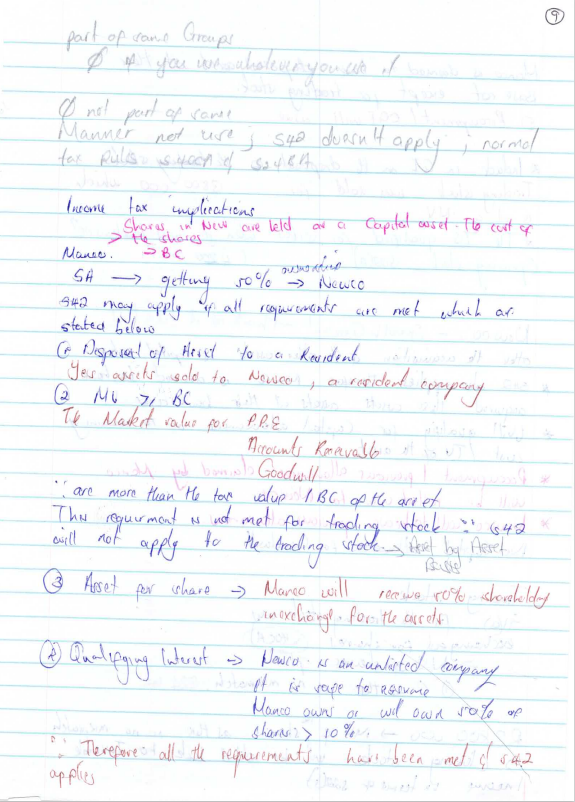 9
part of same Groups
∅ if you use whatever you use if
∅ not part of same
Manner not use ; s42 doesn't apply ; normal
tax Rules s40CA & s24BA
Income tax implications
Shares in New are held as a Capital asset. The cost of
> the shares
Maneo. → BC
SA → getting 50% ownership → Newco
s42 may apply if all requirements are met which are
stated below
① Disposal of Asset to a Resident
Yes assets sold to Newco, a resident company
② MV >, BC
The Market value for P.P.E
Accounts Receivable
Goodwill
∵ are more than the tax value / BC of the asset
This requirment is not met for trading stock ∵ s42
will not apply to the trading stock → Asset by Asset
Basis
③ Asset for share → Maneo will receive 50% shareholding
inexchange for the assets
④ Qualifying Interest → Newco is an unlisted company
It is safe to assume
Maneo owns or will own 50% of
shares > 10%
∵ Therefore all the requirements have been met & s42
applies